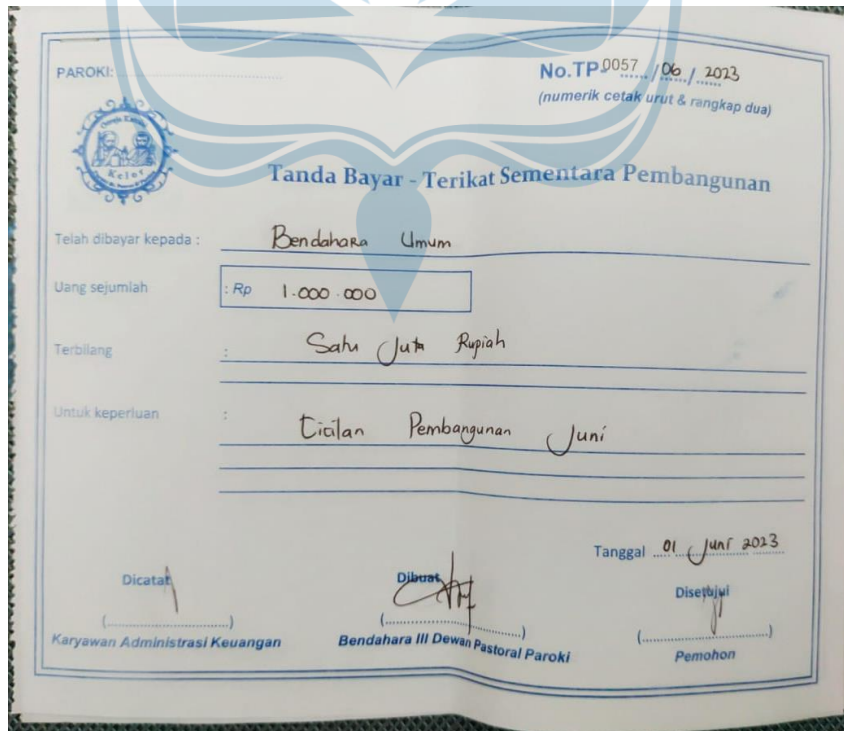 PAROKI:
No.TP 0057 / 06 / 2023
(numerik cetak urut & rangkap dua)
Gereja Katolik
Kelor
Tanda Bayar - Terikat Sementara Pembangunan
Telah dibayar kepada : Bendahara Umum
Uang sejumlah : Rp 1.000.000
Terbilang : Satu Juta Rupiah
Untuk keperluan : Cicilan Pembangunan Juni
Tanggal 01 Juni 2023
Dicatat Dibuat Disetujui
(..............................) (..............................) (..............................)
Karyawan Administrasi Keuangan Bendahara III Dewan Pastoral Paroki Pemohon